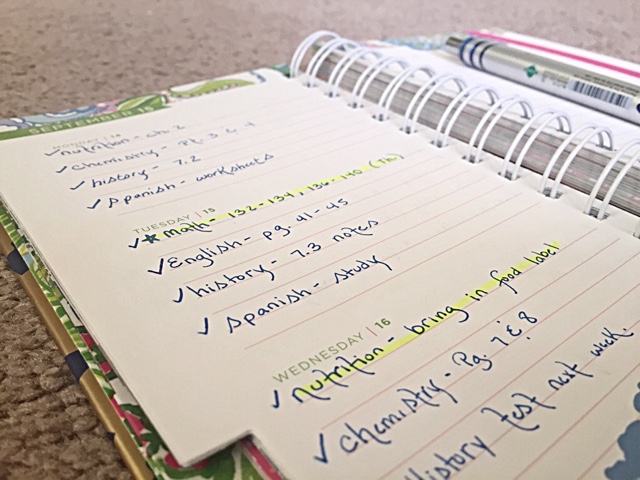 SEPTEMBER 15
MONDAY | 14
✓nutrition - ch. 2
✓chemistry - Pg. 3 & 4
✓history - 7.2
✓Spanish - worksheets
TUESDAY | 15
✓★math - 132-134, 136-140
✓English - pg. 41-45
✓history - 7.3 notes
✓Spanish - study
WEDNESDAY | 16
✓nutrition - bring in food label
✓chemistry - Pg. 7 & 8
History test next week.